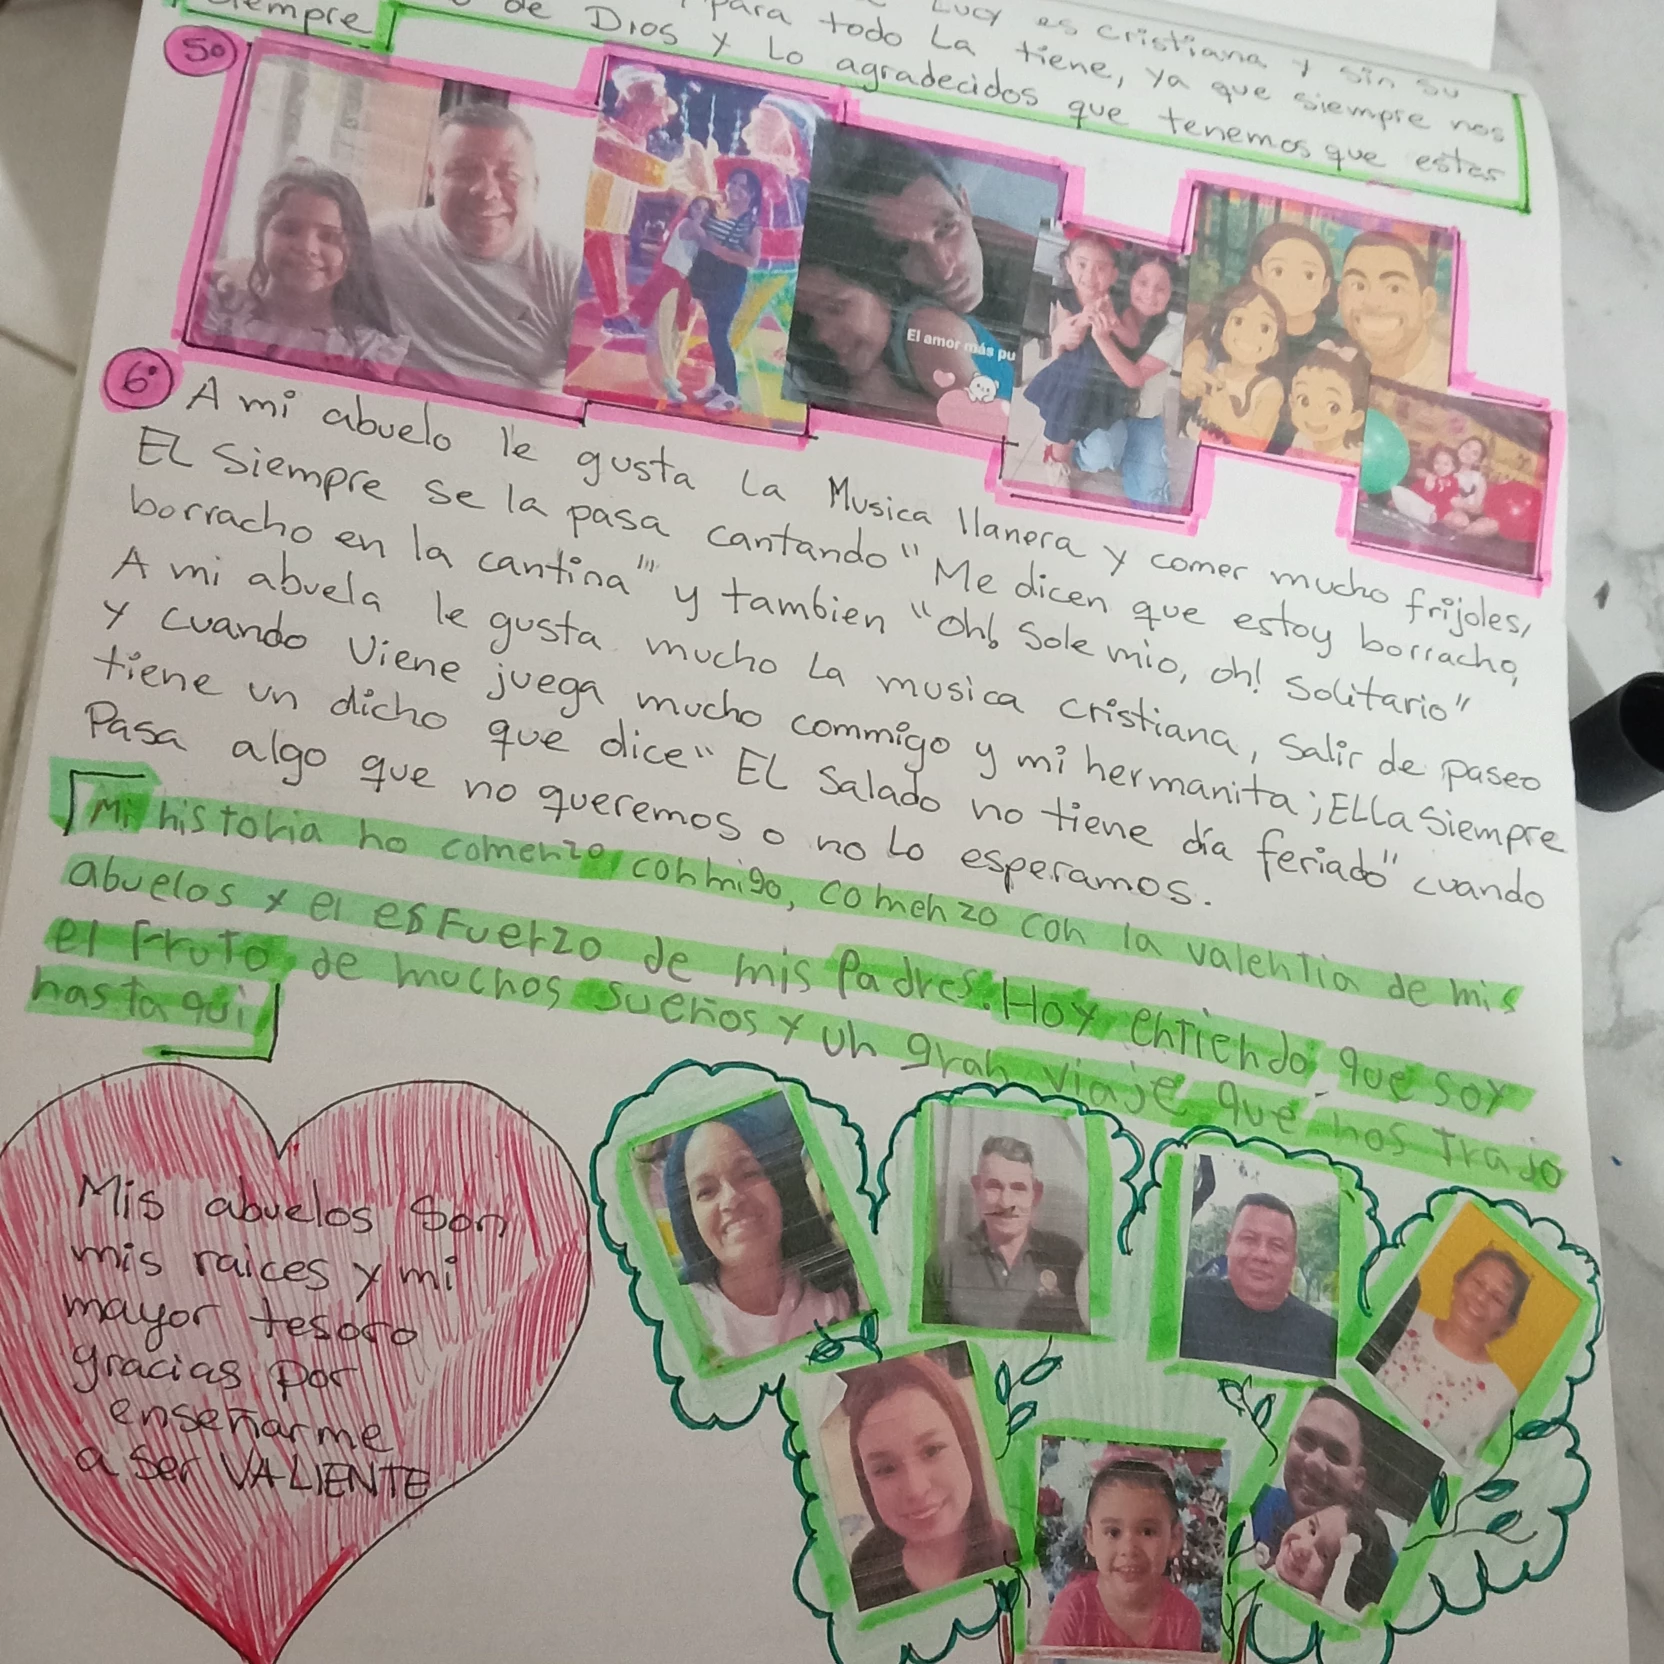 Lucy es cristiana y sin su
para todo La tiene, ya que siempre nos
de Dios y Lo agradecidos que tenemos que estar
siempre
5º
El amor más pu
6º A mi abuelo le gusta La Musica llanera y comer mucho frijoles,
EL Siempre se la pasa cantando "Me dicen que estoy borracho,
borracho en la cantina" y tambien "oh! Sole mio, oh! Solitario"
A mi abuela le gusta mucho La musica cristiana, Salir de paseo
y cuando viene juega mucho commigo y mi hermanita; ELLa Siempre
tiene un dicho que dice "EL Salado no tiene día feriado" cuando
Pasa algo que no queremos o no Lo esperamos.
Mi historia no comenzo conmigo, comenzo con la valentia de mis
abuelos y el esfuerzo de mis Padres. Hoy entiendo que soy
el fruto de muchos sueños y un gran viaje que nos trajo
hasta aqui
Mis abuelos Son
mis raices y mi
mayor tesoro
gracias por
enseñarme
a Ser VALIENTE